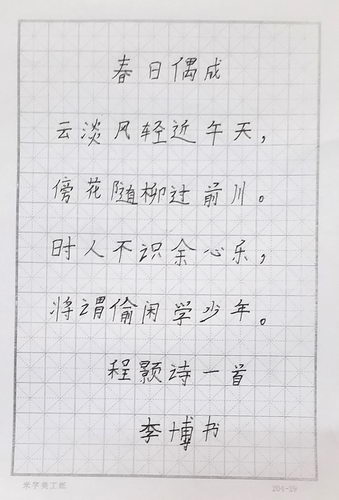 春日偶成
云淡风轻近午天，
傍花随柳过前川。
时人不识余心乐，
将谓偷闲学少年。
程颢诗一首
李博书
米字美工纸 204-19